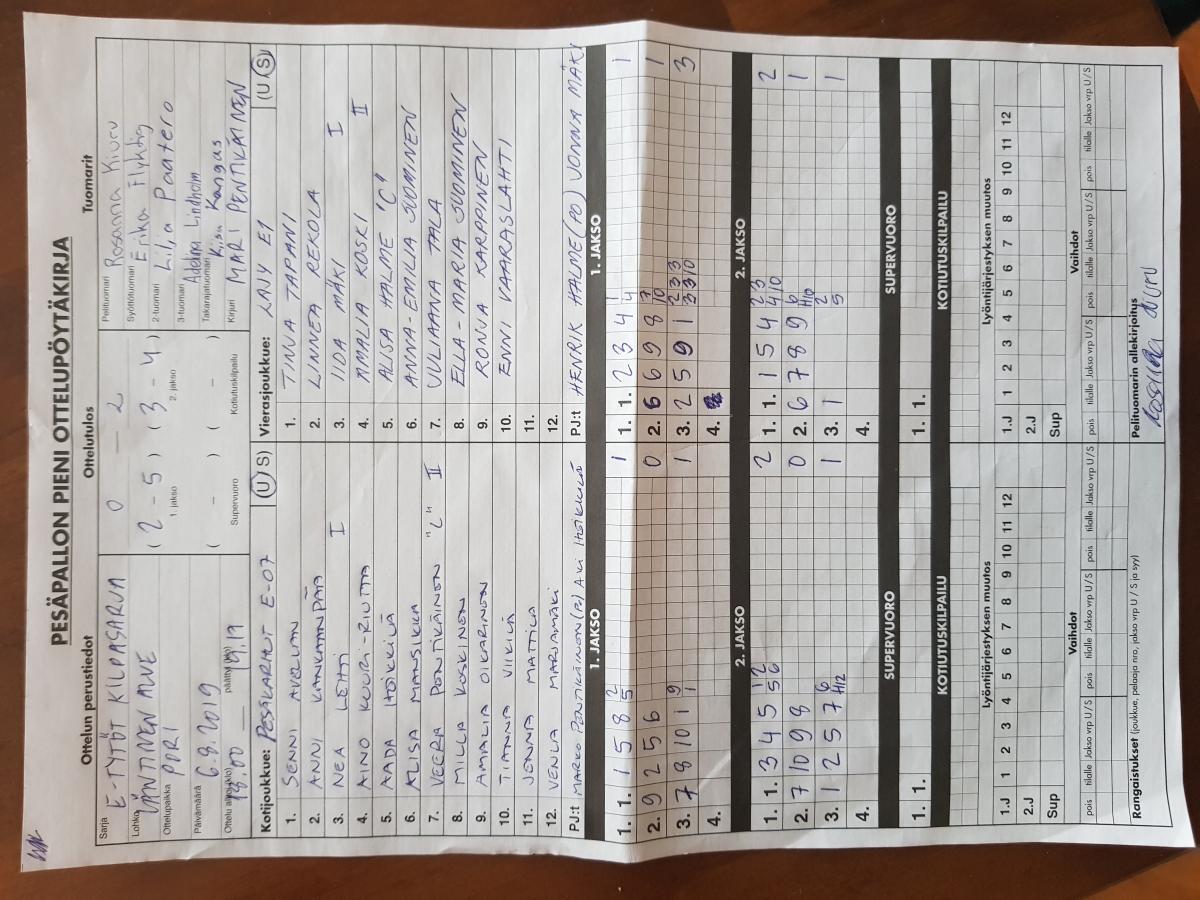 PESÄPALLON PIENI OTTELUPÖYTÄKIRJA
Ottelun perustiedot
Sarja E-TYTÖT KILPASARJA
Lohko LÄNTINEN ALUE
Ottelupaikka PORI
Päivämäärä 6.8.2019
Ottelu alkoi (klo) 18.00 päättyi (klo) 19.19
Ottelutulos
0 - 2
( 2 - 5 ) ( 3 - 4 )
1. jakso 2. jakso
( - ) ( - )
Supervuoro Kotiutuskilpailu
Tuomarit
Pelituomari Rosanna Kivuru
Syöttötuomari Erika Flyktig
2-tuomari Lilja Paatero
3-tuomari Adelina Lindholm
Takarajatuomari Kiisu Kangas
Kirjuri MARI PENTIKÄINEN
Kotijoukkue: PESÄKARHUT E-07 (U S)
1. SENNI
2. ANNI KANKAANPÄÄ
3. NEA LEHTI I
4. AINO KUURI-RIUTTA
5. AADA HÖKKILÄ
6. ALISA MANSIKKA
7. VEERA PONTIKÄINEN "C" II
8. MILLA KOSKINEN
9. AMALIA OIKARINEN
10. TIANNA VIIKILÄ
11. JENNA MATTILA
12. VENLA MARJAMÄKI
PJ:t MARKO PONTIKÄINEN (PJ) AKI
Vierasjoukkue: KAJY E1 (U S)
1. TINJA TAPANI
2. LINNEA REKOLA
3. IIDA MÄKI I
4. AMALIA KOSKI II
5. ALISA HALME "C"
6. ANNA-EMILIA SUOMINEN
7. JULIAANA TALA
8. ELLA-MARIA SUOMINEN
9. RONJA KARPPINEN
10. ENNI VAARASLAHTI
11.
12.
PJ:t HENRIK HALME (PO) JONNA MÄKI
1. JAKSO
1. 1. 1 5 8 5 2 1
2. 9 2 5 6 0
3. 7 8 10 1 1 9 1
4.
2. JAKSO
1. 1. 3 4 5 5 6 1 2 2
2. 7 10 9 8 0
3. 1 2 5 7 H12 6 1
4.
SUPERVUORO
1. 1.
KOTIUTUSKILPAILU
Lyöntijärjestyksen muutos
1.J 1 2 3 4 5 6 7 8 9 10 11 12
2.J
Sup
Vaihdot
pois tilalle Jakso vrp U / S pois tilalle Jakso vrp U / S pois tilalle Jakso vrp U / S
1. JAKSO
1. 1. 2 3 4 4 1 1
2. 6 6 9 8 10 7 1
3. 2 5 9 1 3 3 10 2 3 3 3
4.
2. JAKSO
1. 1. 1 5 4 4 10 2 3 2
2. 6 7 8 9 H10 6 1
3. 1 5 2 1
4.
SUPERVUORO
1. 1.
KOTIUTUSKILPAILU
Lyöntijärjestyksen muutos
1.J 1 2 3 4 5 6 7 8 9 10 11 12
2.J
Sup
Vaihdot
pois tilalle Jakso vrp U / S pois tilalle Jakso vrp U / S pois tilalle Jakso vrp U / S
Rangaistukset (joukkue, pelaaja nro, jakso vrp U / S ja syy)
Pelituomarin allekirjoitus